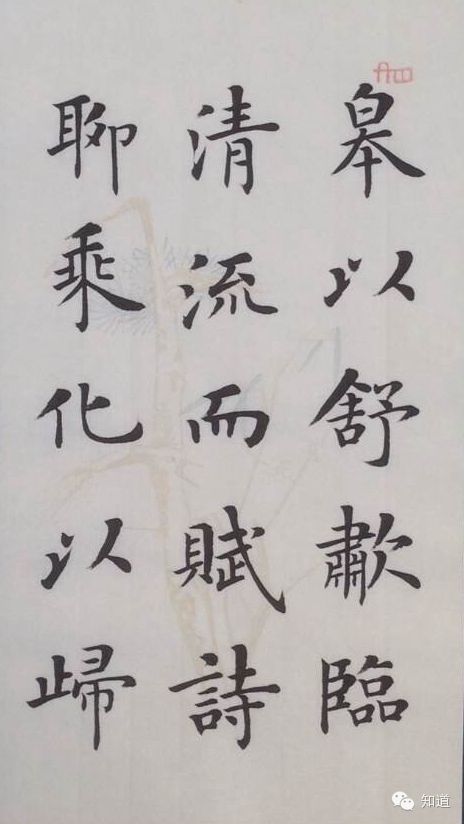 皋以舒歗臨
清流而賦詩
聊乘化以歸
知道